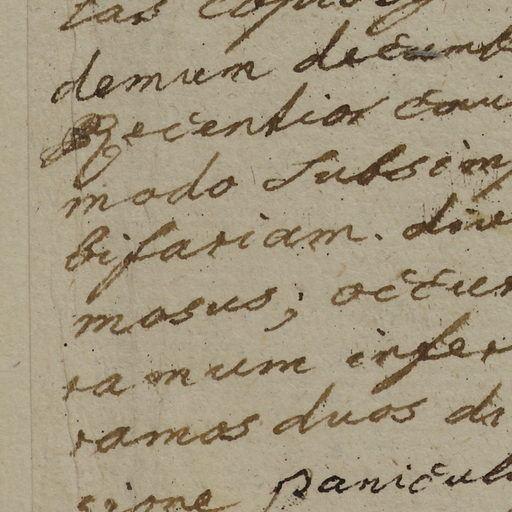 demum decumb
Recentior caui
modo subsimp
bifariam. div
mosus; occur
ramum infer
ramos duos di
sione panicul